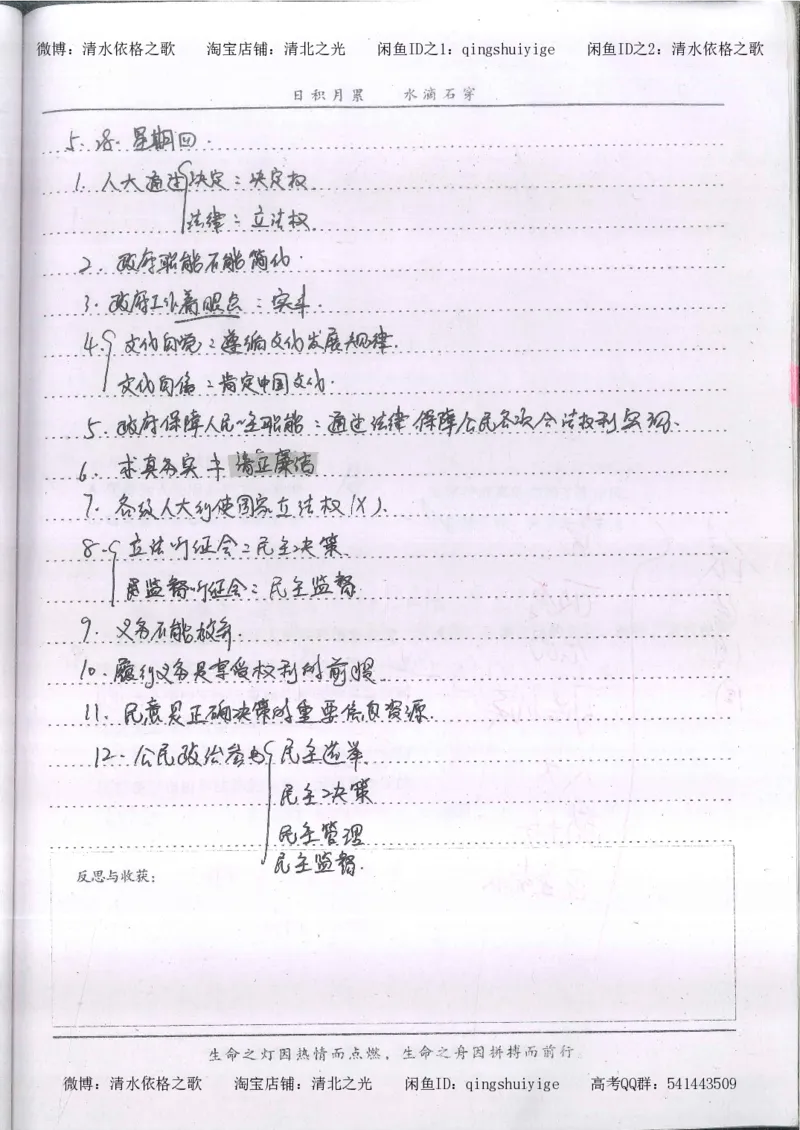 微博：清水依格之歌 淘宝店铺：清北之光 闲鱼ID之1：qingshuiyige 闲鱼ID之2：清水依格之歌
日积月累 水滴石穿
5.28.星期四.
1. 人大通过{决定：决定权.
法律：立法权.
2. 政府职能不能简化.
3. 政府工作着眼点：实干.
4.{文化自觉：遵循文化发展规律.
文化自信：肯定中国文化.
5. 政府保障人民民主职能：通过法律保障公民各项合法权利实现.
6. 求真务实≠清正廉洁
7. 各级人大行使国家立法权(X).
8.{立法听证会：民主决策.
监督听证会：民主监督.
9. 义务不能放弃.
10. 履行义务是享受权利的前提.
11. 民意是正确决策的重要信息资源.
12. 公民政治参与{民主选举.
民主决策
民主管理
民主监督.
反思与收获：
生命之灯因热情而点燃，生命之舟因拼搏而前行
微博：清水依格之歌 淘宝店铺：清北之光 闲鱼ID：qingshuiyige 高考QQ群：541443509